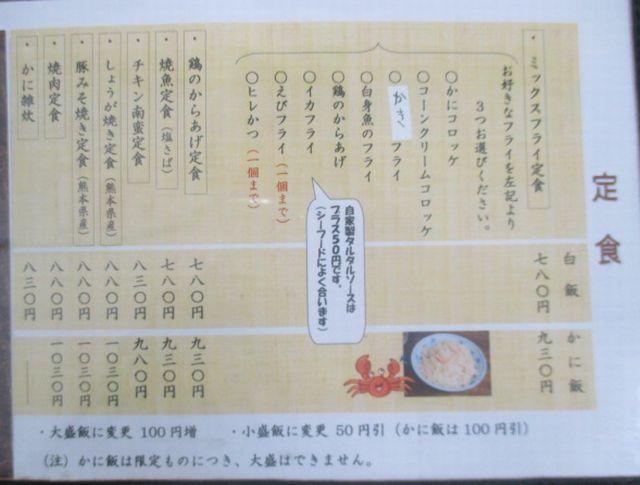 定食
白飯
かに飯
・ミックスフライ定食
七八〇円
九三〇円
お好きなフライを左記より
３つお選びください。
〇かにコロッケ
〇コーンクリームコロッケ
〇かきフライ
〇白身魚のフライ
〇鶏のからあげ
〇イカフライ
〇えびフライ（一個まで）
〇ヒレかつ（一個まで）
自家製タルタルソースは
プラス５０円です。
（シーフードによく合います）
・鶏のからあげ定食
七八〇円
九三〇円
・焼魚定食（塩さば）
七八〇円
九三〇円
・チキン南蛮定食
八三〇円
九八〇円
・しょうが焼き定食（熊本県産）
八八〇円
一〇三〇円
・豚みそ焼き定食（熊本県産）
八八〇円
一〇三〇円
・焼肉定食
八八〇円
一〇三〇円
・かに雑炊
八三〇円
・大盛飯に変更 100円増
・小盛飯に変更 50円引（かに飯は100円引）
（注）かに飯は限定ものにつき、大盛はできません。